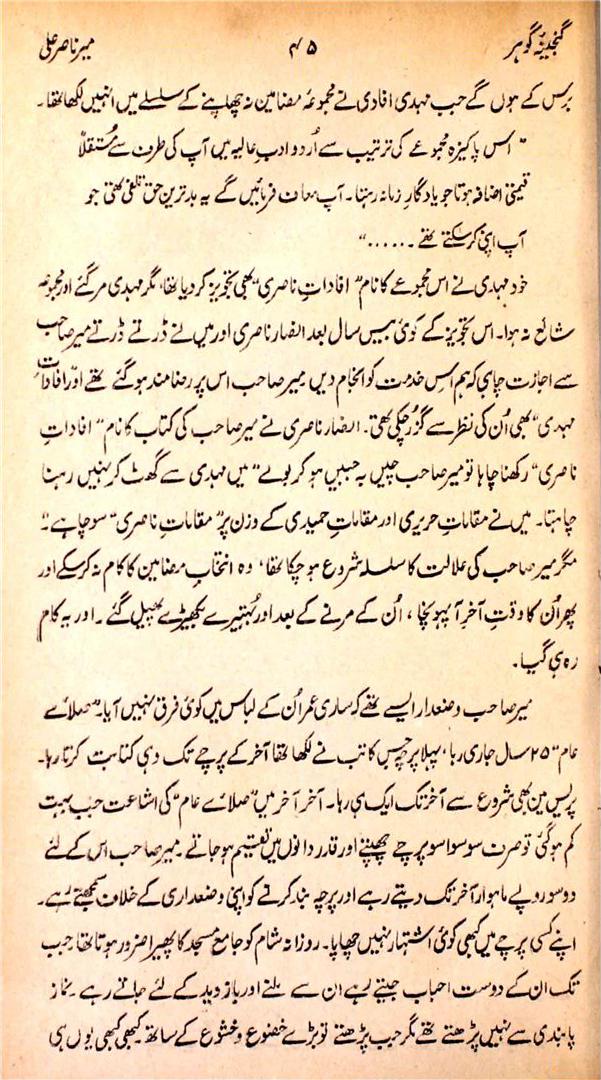 گنجینۂ گوہر ۴۵ میر ناصر علی
برس کے ہوں گے جب مہدی افادی نے مجموعۂ مضامین نہ چھاپنے کے سلسلے میں انہیں لکھا تھا۔
" اس پاکیزہ مجموعے کی ترتیب سے اُردو ادبِ عالیہ میں آپ کی طرف سے مُستقلاً
قیمتی اضافہ ہوتا جو یادگارِ زمانہ رہتا۔ آپ معاف فرمائیں گے یہ بدترین حق تلفی تھی جو
آپ اپنی کر سکتے تھے ......"
خود مہدی نے اس مجموعے کا نام "افاداتِ ناصری" بھی تجویز کر دیا تھا، مگر مہدی مر گئے اور مجموعہ
شائع نہ ہوا۔ اس تجویز کے کوئی بیس سال بعد انصار ناصری اور میں نے ڈرتے ڈرتے میر صاحب
سے اجازت چاہی کہ ہم اس خدمت کو انجام دیں میر صاحب اس پر رضامند ہو گئے تھے اور "افاداتِ
مہدی" بھی اُن کی نظر سے گزر چکی تھی۔ انصار ناصری نے میر صاحب کی کتاب کا نام " افاداتِ
ناصری" رکھنا چاہا تو میر صاحب چیں بہ جبیں ہو کر بولے "میں مہدی سے گھٹ کر نہیں رہنا
چاہتا۔ میں نے مقاماتِ حریری اور مقاماتِ حمیدی کے وزن پر "مقاماتِ ناصری" سوچا ہے۔"
مگر میر صاحب کی علالت کا سلسلہ شروع ہو چکا تھا، وہ انتخابِ مضامین کا کام نہ کر سکے اور
پھر اُن کا وقتِ آخر آ پہونچا، اُن کے مرنے کے بعد اور بُہتیرے بکھیڑے پھیل گئے۔ اور یہ کام
رہ ہی گیا۔
میر صاحب وضعدار ایسے تھے کہ ساری عمر اُن کے لباس میں کوئی فرق نہیں آیا۔ "صلائے
عام" ۲۵ سال جاری رہا، پہلا پرچہ جس کاتب نے لکھا تھا آخر کے پرچے تک وہی کتابت کرتا رہا۔
پریس مین بھی شروع سے آخر تک ایک ہی رہا۔ آخر آخر میں "صلائے عام" کی اشاعت جب بہت
کم ہو گئی تو صرف سو سوا سو پرچے چھپتے اور قدردانوں میں تقسیم ہو جاتے۔ میر صاحب اس کے لئے
دو سو روپے ماہوار آخر تک دیتے رہے اور پرچہ بند کرنے کو اپنی وضعداری کے خلاف سمجھتے رہے۔
اپنے کسی پرچے میں کبھی کوئی اشتہار نہیں چھاپا۔ روزانہ شام کو جامع مسجد کا پھیرا ضرور ہوتا تھا جب
تک ان کے دوست احباب جیتے رہے ان سے ملنے اور بازدید کے لئے جاتے رہے۔ نماز
پابندی سے نہیں پڑھتے تھے مگر جب پڑھتے تو بڑے خضوع و خشوع کے ساتھ کبھی کبھی یوں ہی